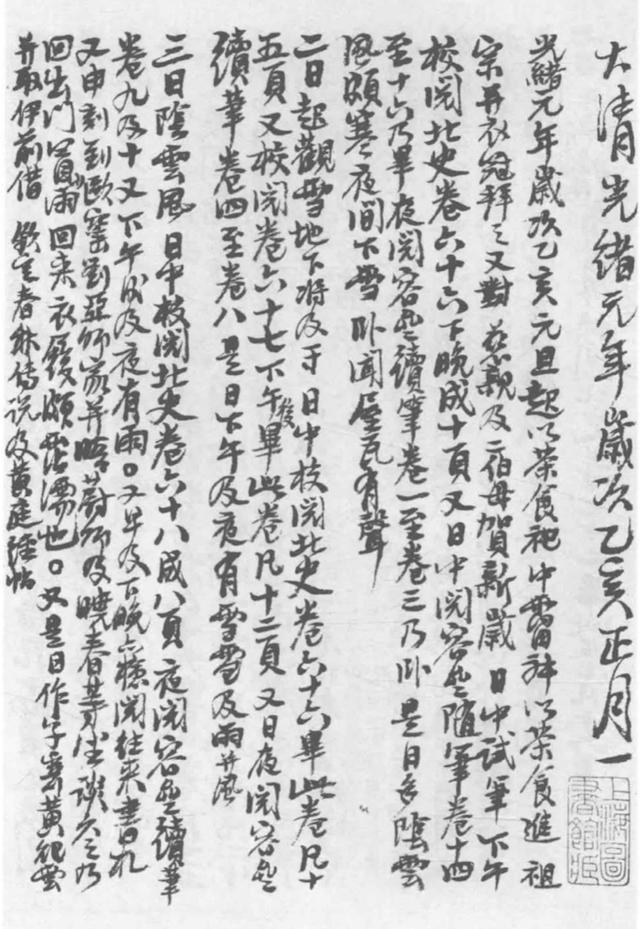 大清光緒元年歲次乙亥正月一
光緒元年歲次乙亥元旦起以茶食祀中霤神以茶食進祖
宗并衣冠拜之又對慈親及二伯母賀新歲日中試筆下午
校閱北史卷六十六下晚成十頁又日中閱容齋隨筆卷十四
至十六乃畢夜閱容齋續筆卷一至卷三乃卧是日多陰雲
風頗寒夜間下雪卧聞屋瓦有聲
二日起觀雪地下將及寸日中校閱北史卷六十六畢此卷凡十
五頁又校閱卷六十七下午後畢此卷凡十二頁又日夜閱容齋
續筆卷四至卷八是日下午及夜有雪雪及雨并風
三日陰雲風日中校閱北史卷六十八成八頁夜閱容齋續筆
卷九及十又下午後及夜有雨又早及下晚亦檢閱往來書札
又申刻到歐窯劉亞師家并晤蔚師及曉春等坐談久之乃
回出門冒雨回來衣履頗霑濡也又是日作字寄黃紀雲
并取伊前借欽定春秋傳說及黃庭經帖
上海圖書館藏